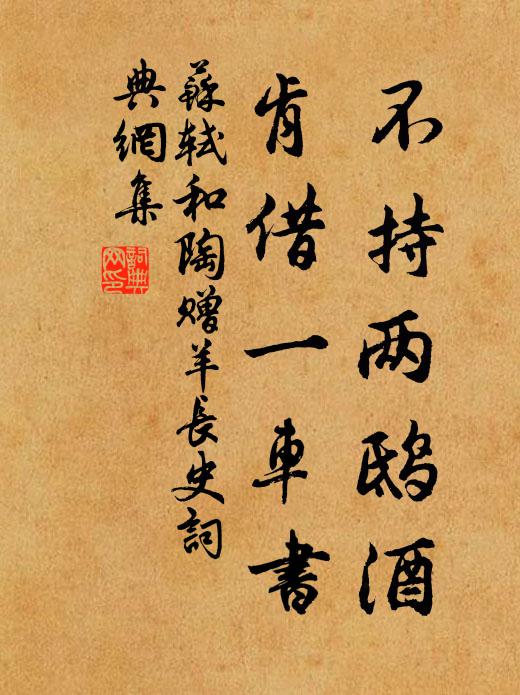 不持两鸱酒
肯借一車書
蘇軾和陶贈羊長史詞
典網集
詞典網印